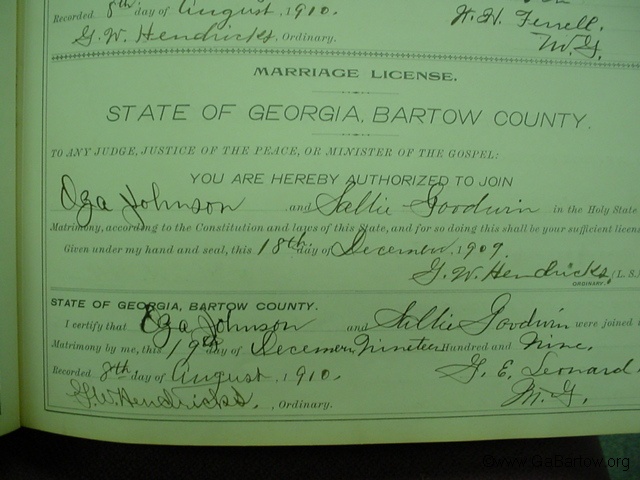 Recorded 8th day of August, 1910. W. H. Ferrell.
G. W. Hendricks, Ordinary. M.G.
MARRIAGE LICENSE.
STATE OF GEORGIA, BARTOW COUNTY.
TO ANY JUDGE, JUSTICE OF THE PEACE, OR MINISTER OF THE GOSPEL:
YOU ARE HEREBY AUTHORIZED TO JOIN
Oza Johnson and Sallie Goodwin in the Holy State
Matrimony, according to the Constitution and laws of this State, and for so doing this shall be your sufficient licens
Given under my hand and seal, this 18th day of December, 1909.
G. W. Hendricks, (L. S.
ORDINARY.
STATE OF GEORGIA, BARTOW COUNTY.
I certify that Oza Johnson and Sallie Goodwin were joined i
Matrimony by me, this 19th day of December Nineteen Hundred and Nine.
Recorded 8th day of August, 1910. G. E. Leonard
G.W. Hendricks, Ordinary. M. G.
©www.GaBartow.org